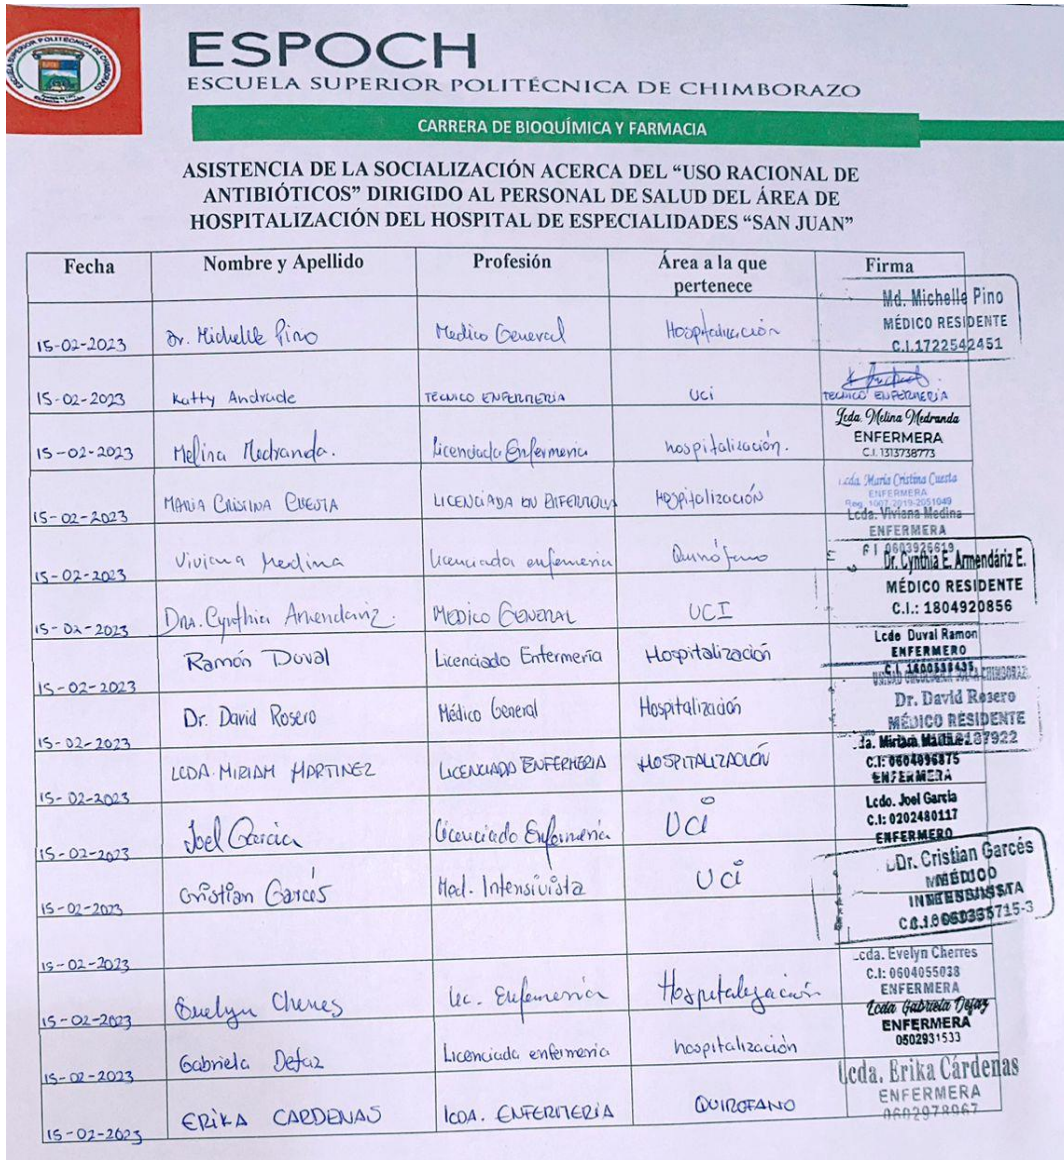 ESPOCH
ESCUELA SUPERIOR POLITÉCNICA DE CHIMBORAZO
CARRERA DE BIOQUÍMICA Y FARMACIA
ASISTENCIA DE LA SOCIALIZACIÓN ACERCA DEL “USO RACIONAL DE
ANTIBIÓTICOS” DIRIGIDO AL PERSONAL DE SALUD DEL ÁREA DE
HOSPITALIZACIÓN DEL HOSPITAL DE ESPECIALIDADES “SAN JUAN”
Fecha Nombre y Apellido Profesión Área a la que pertenece Firma
15-02-2023 Dr. Michelle Pino Medico General Hospitalización
Md. Michelle Pino
MÉDICO RESIDENTE
C.I.1722542451
15-02-2023 Katty Andrade TECNICO ENFERMERIA Uci
TECNICO ENFERMERIA
15-02-2023 Melina Medranda. Licenciada Enfermeria hospitalización.
Lcda. Melina Medranda
ENFERMERA
C.I. 1313738773
15-02-2023 MARIA CRISTINA CUESTA LICENCIADA EN ENFERMERIA Hospitalización
Lcda. Maria Cristina Cuesta
ENFERMERA
Reg. 1007-2019-2051049
15-02-2023 Viviana Medina Licenciada enfermeria Quirófano
Lcda. Viviana Medina
ENFERMERA
15-02-2023 Dra. Cynthia Armendariz. MEDICO GENERAL UCI
Dr. Cynthia E. Armendáriz E.
MÉDICO RESIDENTE
C.I.: 1804920856
15-02-2023 Ramón Duval Licenciado Enfermería Hospitalización
Lcdo Duval Ramon
ENFERMERO
15-02-2023 Dr. David Rosero Médico General Hospitalización
Dr. David Rosero
MÉDICO RESIDENTE
15-02-2023 LCDA. MIRIAM MARTINEZ LICENCIADA ENFERMERIA HOSPITALIZACIÓN
C.I: 0604096875
ENFERMERA
15-02-2023 Joel Garcia Licenciado Enfermeria Uci
Lcdo. Joel García
C.I: 0202480117
ENFERMERO
15-02-2023 Cristian Garcés Med. Intensivista Uci
Dr. Cristian Garcés
MÉDICO
15-02-2023
15-02-2023 Evelyn Cherres Lic. Enfermería Hospitalización
Lcda. Evelyn Cherres
C.I: 0604055038
ENFERMERA
15-02-2023 Gabriela Defaz Licenciada enfermeria hospitalización
Lcda. Gabriela Defaz
ENFERMERA
0502931533
15-02-2023 ERIKA CARDENAS lCDA. ENFERMERIA QUIROFANO
Lcda. Erika Cárdenas
ENFERMERA
0602978967